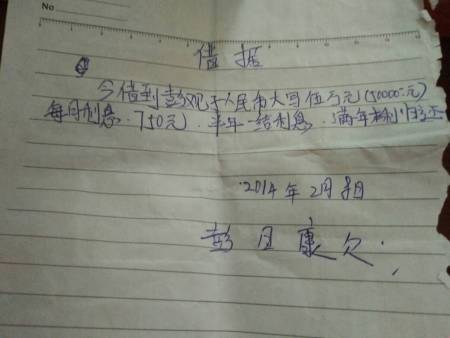 No
借据
今借到彭观于人民币大写伍万元(50000元)
每月利息.750元.半年一结利息.满年本利归还
2014年2月8日
彭月康欠